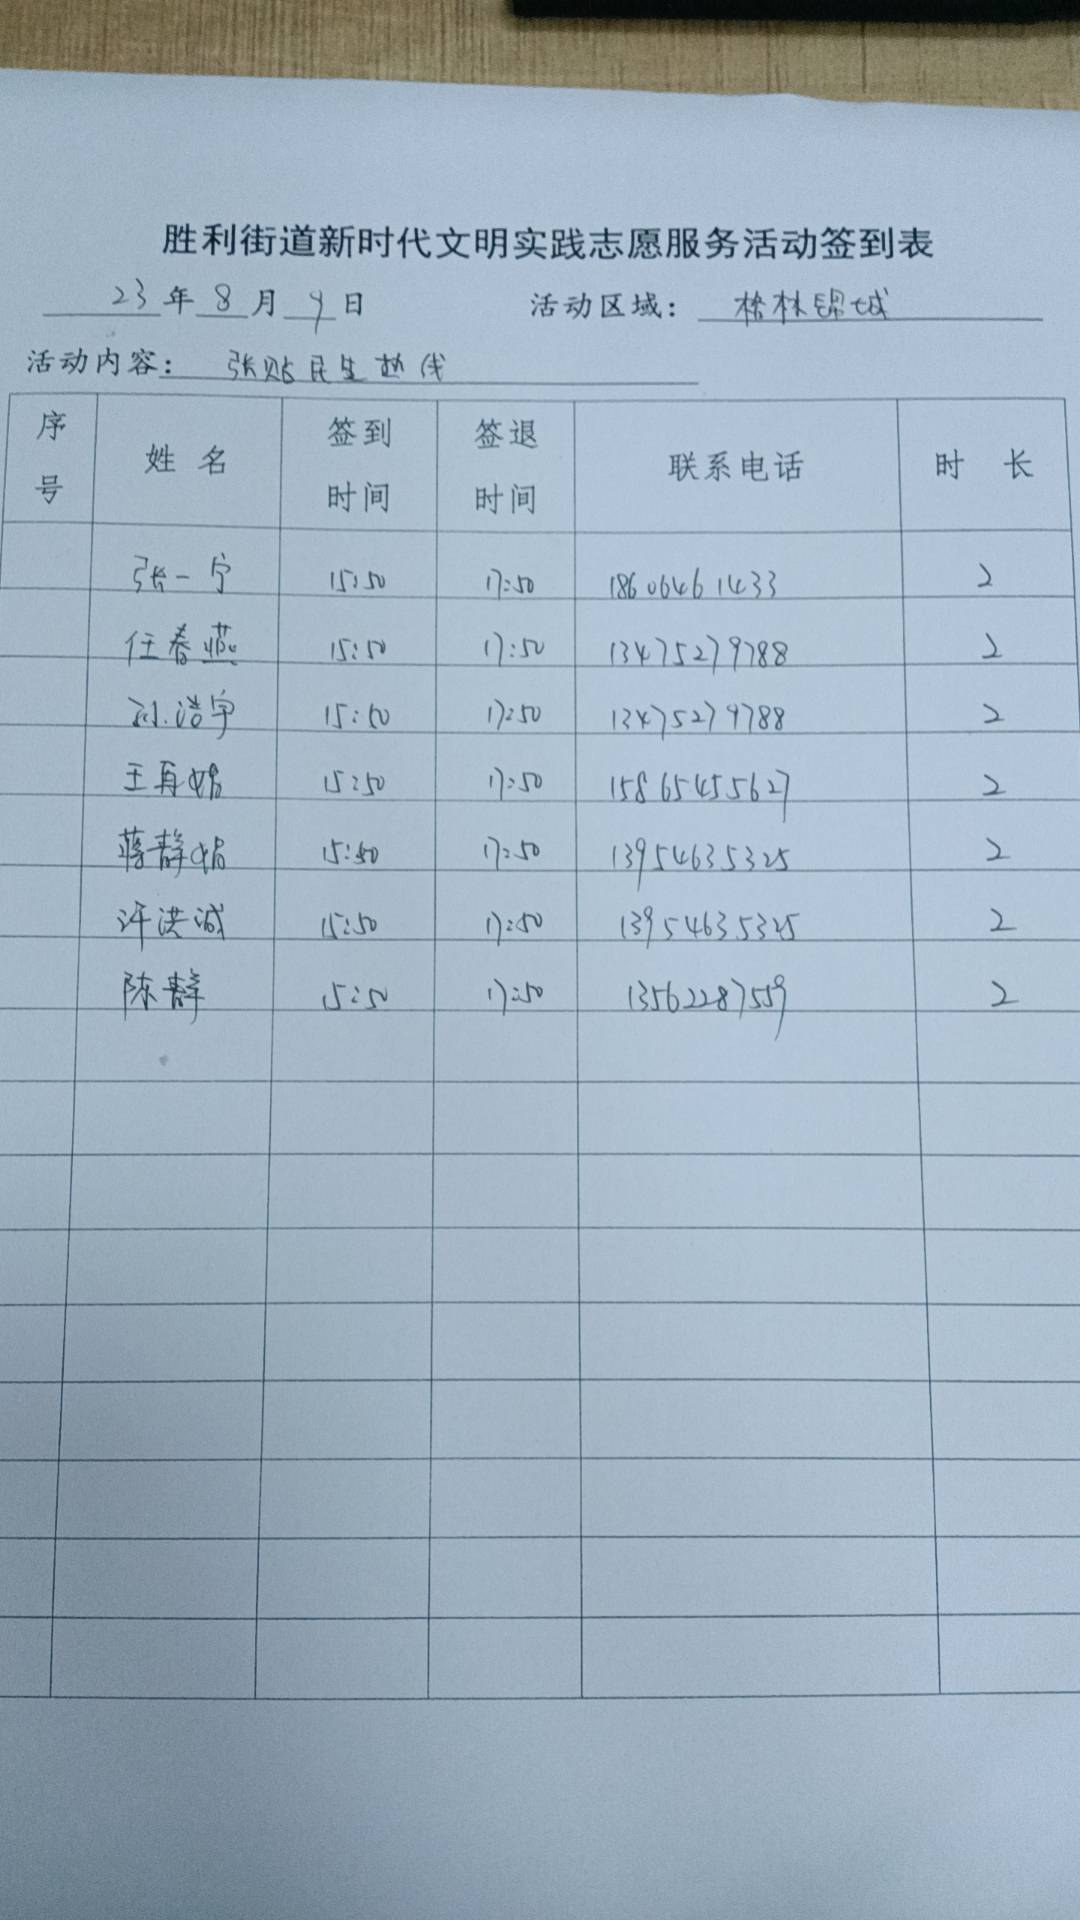 胜利街道新时代文明实践志愿服务活动签到表
23年8月9日 活动区域：榆林锦城
活动内容：张贴民生热线
序号 姓名 签到时间 签退时间 联系电话 时长
张一宁 15:50 17:50 18606461433 2
任春燕 15:50 17:50 13475279788 2
孙浩宇 15:50 17:50 13475279788 2
王再娟 15:50 17:50 15865455627 2
蒋静娟 15:50 17:50 13954635325 2
许洪诚 15:50 17:50 13954635325 2
陈静 15:50 17:50 13562287559 2